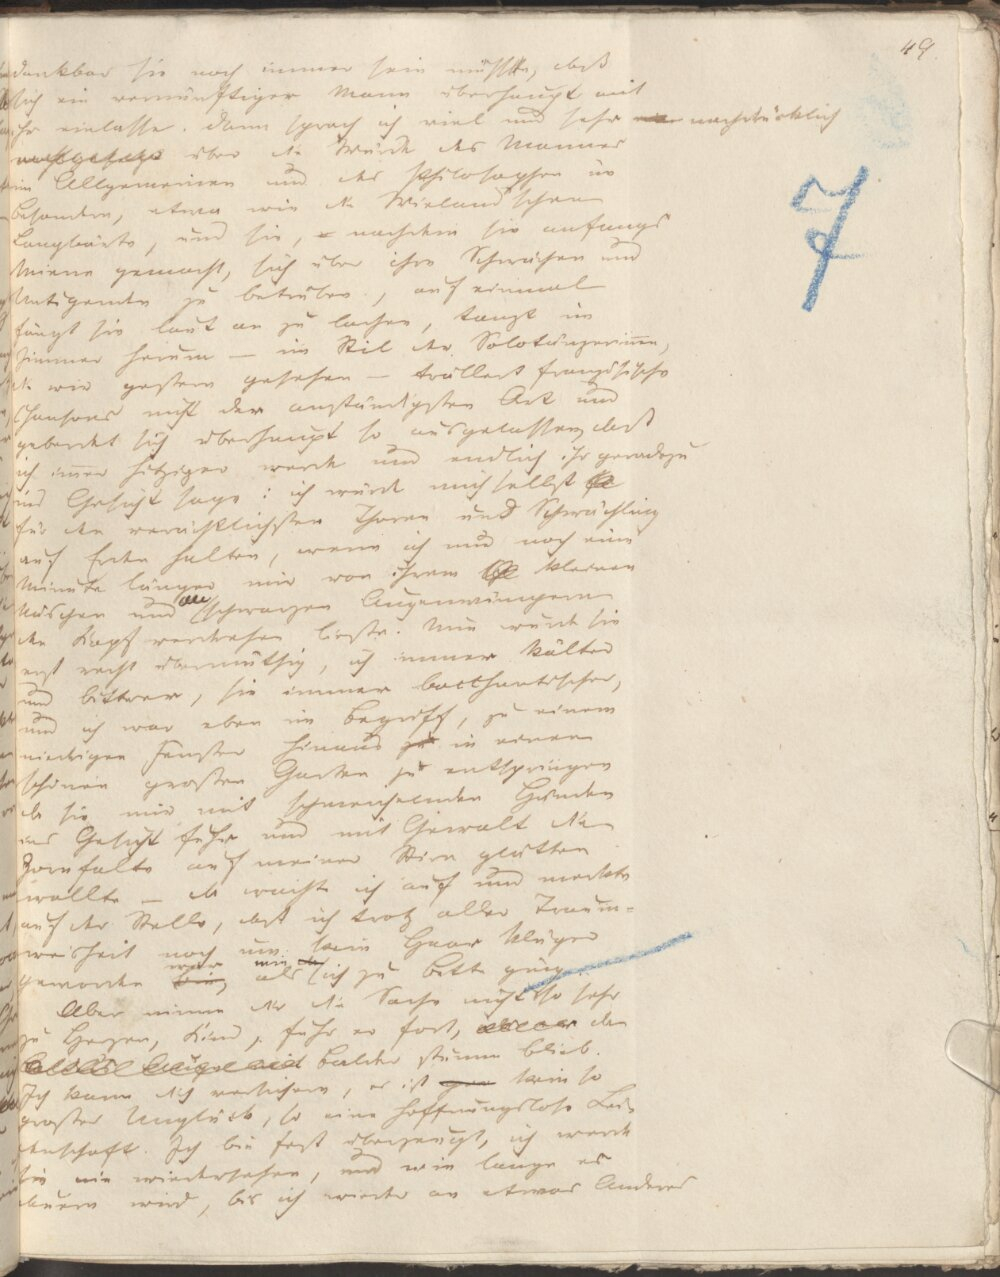 49.
dankbar sie noch immer sein müßte, daß
sich ein vernünftiger Mann überhaupt mit
ihr einlasse. Dann sprach ich viel und sehr nachdrücklich
über die Würde des Mannes
im Allgemeinen und des Philosophen im
Besondern, etwa wie die Wieland'schen
Langbärte, und sie, nachdem sie anfangs
Miene gemacht, sich über ihre Schwächen und
Untugenden zu betrüben, auf einmal
fängt sie laut an zu lachen, tanzt im
Zimmer herum – im Stil der Solotänzerinnen,
die wir gestern gesehen – trällert französische
Chansons nicht der anständigsten Art und
geberdet sich überhaupt so ausgelassen, daß
ich immer hitziger werde und endlich ihr geradezu
ins Gesicht sage: ich würde mich selbst
für den verächtlichsten Thoren und Schwächling
auf Erden halten, wenn ich nur noch eine
Minute länger mir von ihrem kleinen
Näschen und den schwarzen Augenwimpern
den Kopf verdrehen ließe. Nun wurde sie
erst recht übermüthig, ich immer kälter
und bittrer, sie immer bacchantischer,
und ich war eben im Begriff, zu einem
niedrigen Fenster hinaus in einen
schönen großen Garten zu entspringen
da sie mir mit schmeichelnden Händen
ins Gesicht fuhr und mit Gewalt die
Zornfalte auf meiner Stirn glätten
wollte – da wachte ich auf und merkte
auf der Stelle, daß ich trotz aller Traum-
weisheit noch um kein Haar klüger
geworden war, als wie ich zu Bett ging.
Aber nimm dir die Sache nicht so sehr
zu Herzen, Kind, fuhr er fort, da
Balder stumm blieb.
Ich kann dich versichern, es ist kein so
großes Unglück, so eine hoffnungslose Lei-
denschaft. Ich bin fest überzeugt, ich werde
sie nie wiedersehen, und wie lange es
dauern wird, bis ich wieder an etwas Anderes
7